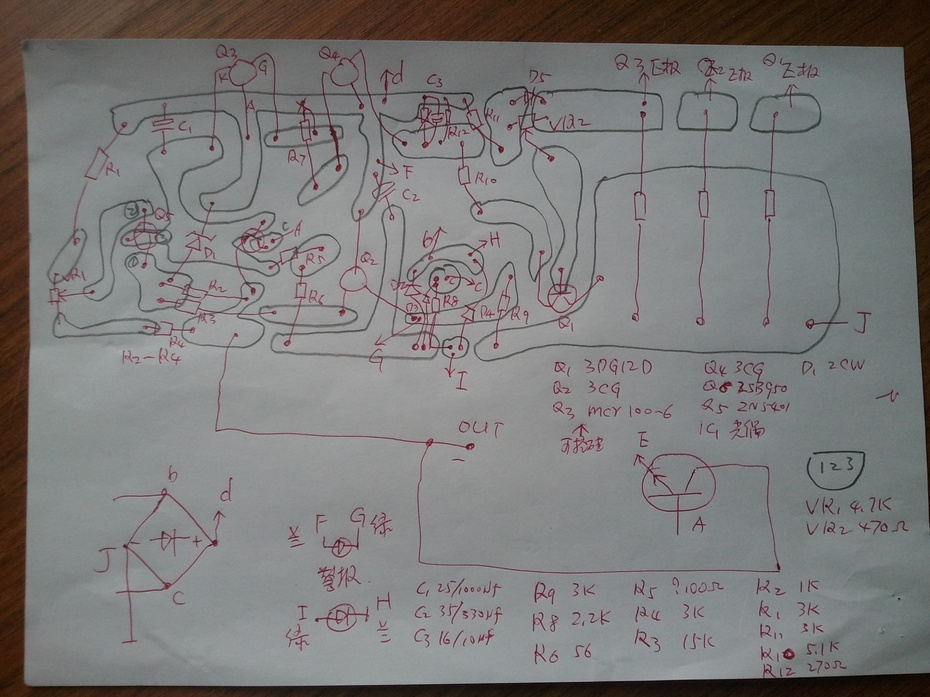 Q3
Q4
K
G
A
d
C3
D5
Q3 E极
Q2 E极
Q1 E极
C1
R7
R12
R11
VR2
R1
F
C2
R10
②
Q5
C
A
b
H
D1
R5
Q2
①
VR1
D2
C
R2
R6
R8
D3
D4
R9
R3
Q1
R4
J
R2-R4
G
I
Q1 3DG12D
Q4 3CG
D1 2CW
Q2 3CG
Q6 2SB950
Q3 MCY100-6
Q5 2N5401
可控硅
IC1 光偶
OUT
-
E
123
A
VR1 4.7K
VR2 470Ω
b
d
J
- +
C
兰 F G 绿
警报
I H
绿 兰
C1 25/1000uf
C2 35/330uf
C3 16/10uf
R9 3K
R8 2.2K
R6 56
R5 ?100Ω
R4 3K
R3 15K
R2 1K
R1 3K
R11 3K
R10 5.1K
R12 270Ω